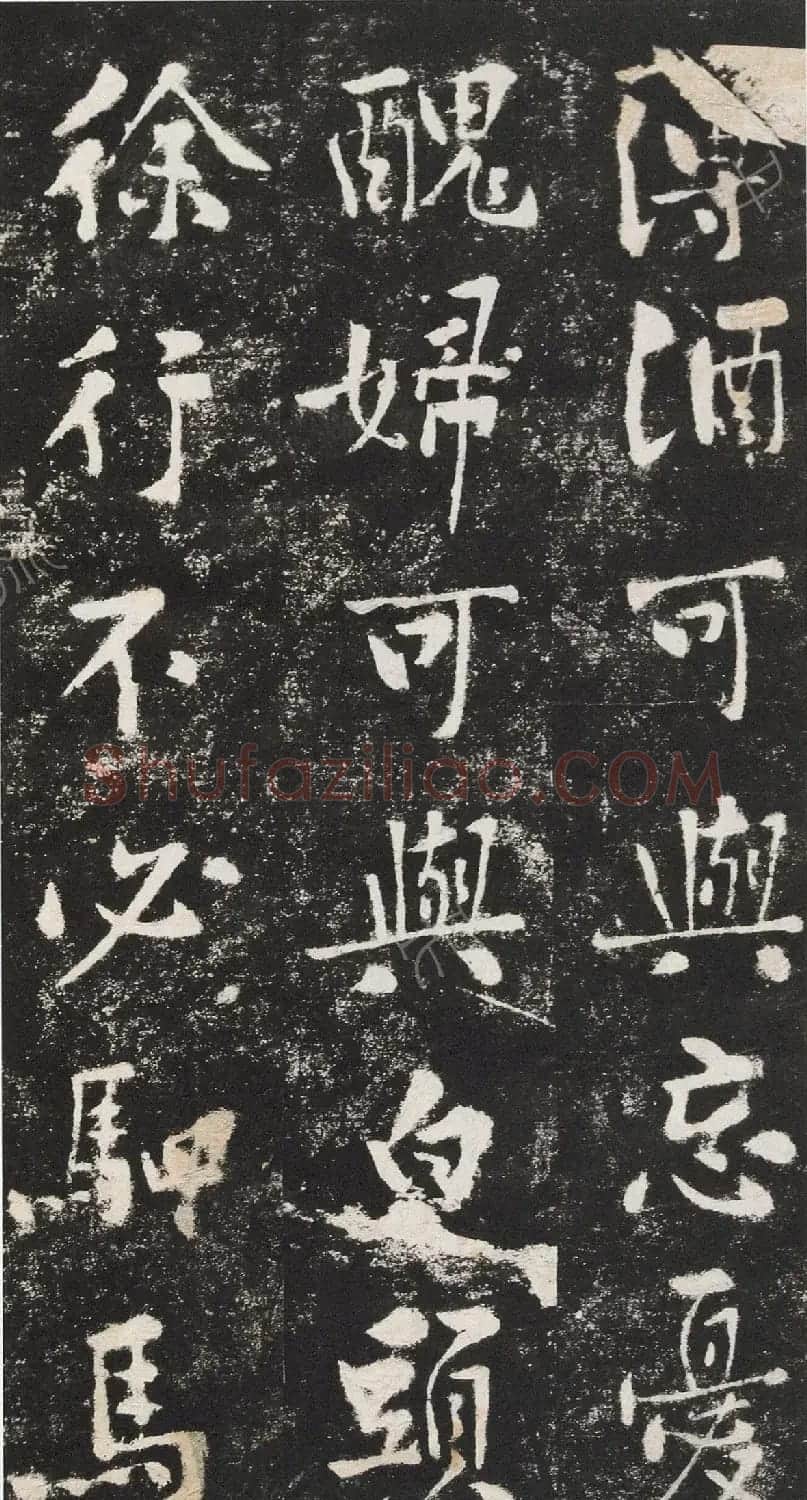 薄酒可與忘憂
醜婦可與白頭
徐行不必駟馬
Shufaziliao.COM